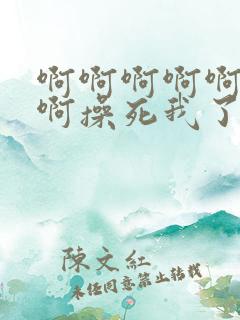 啊啊啊啊啊
啊操死我了
陳文紅
未经同意禁止转载